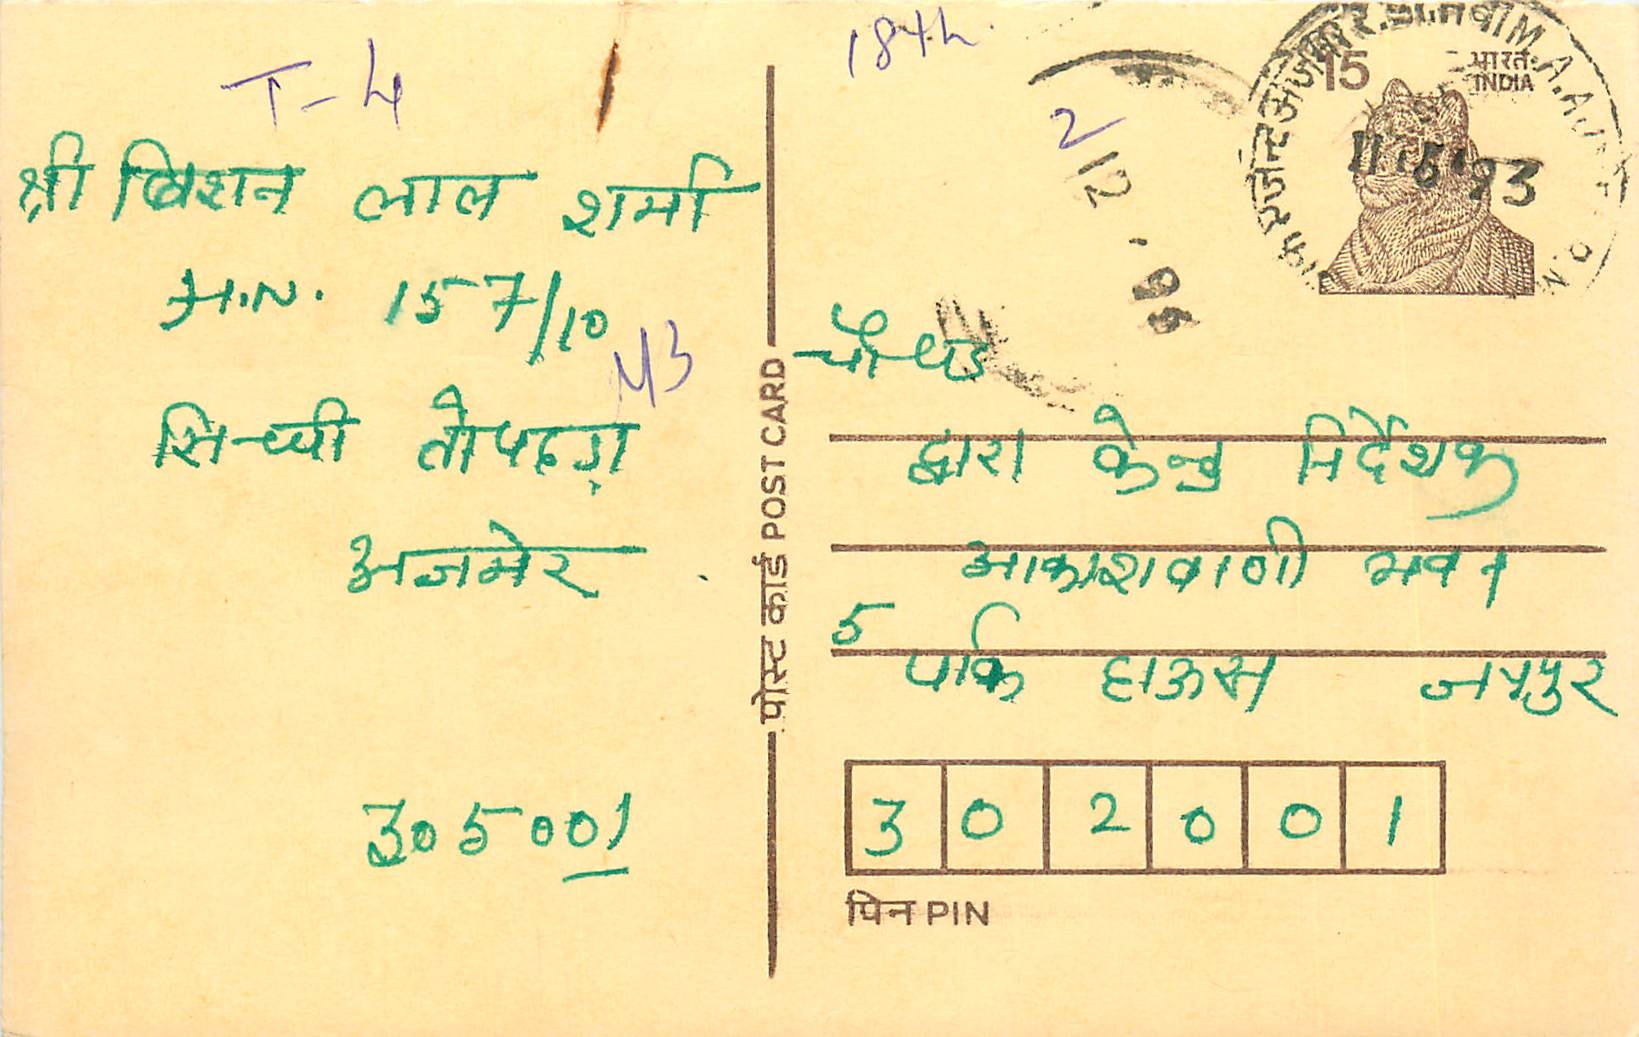 T-4
श्री बिशन लाल शर्मा
म.न. 157/10
M3
तोपदड़ा
अजमेर
305001
पोस्ट कार्ड POST CARD
18th
2
15
भारत
INDIA
11.5.93
चौपड
द्वारा केन्द्र निर्देशक
आकाशवाणी भवन
5
पार्क हाऊस जयपुर
302001
पिन PIN